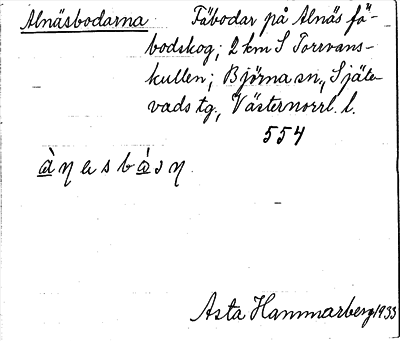 Alnäsbodarna Fäbodar på Alnäs fä-
bodskog; 2 km S Torrvans-
kullen; Björna sn, Själe-
vads tg, Västernorrl. l.
554
Asta Hammarberg 1933